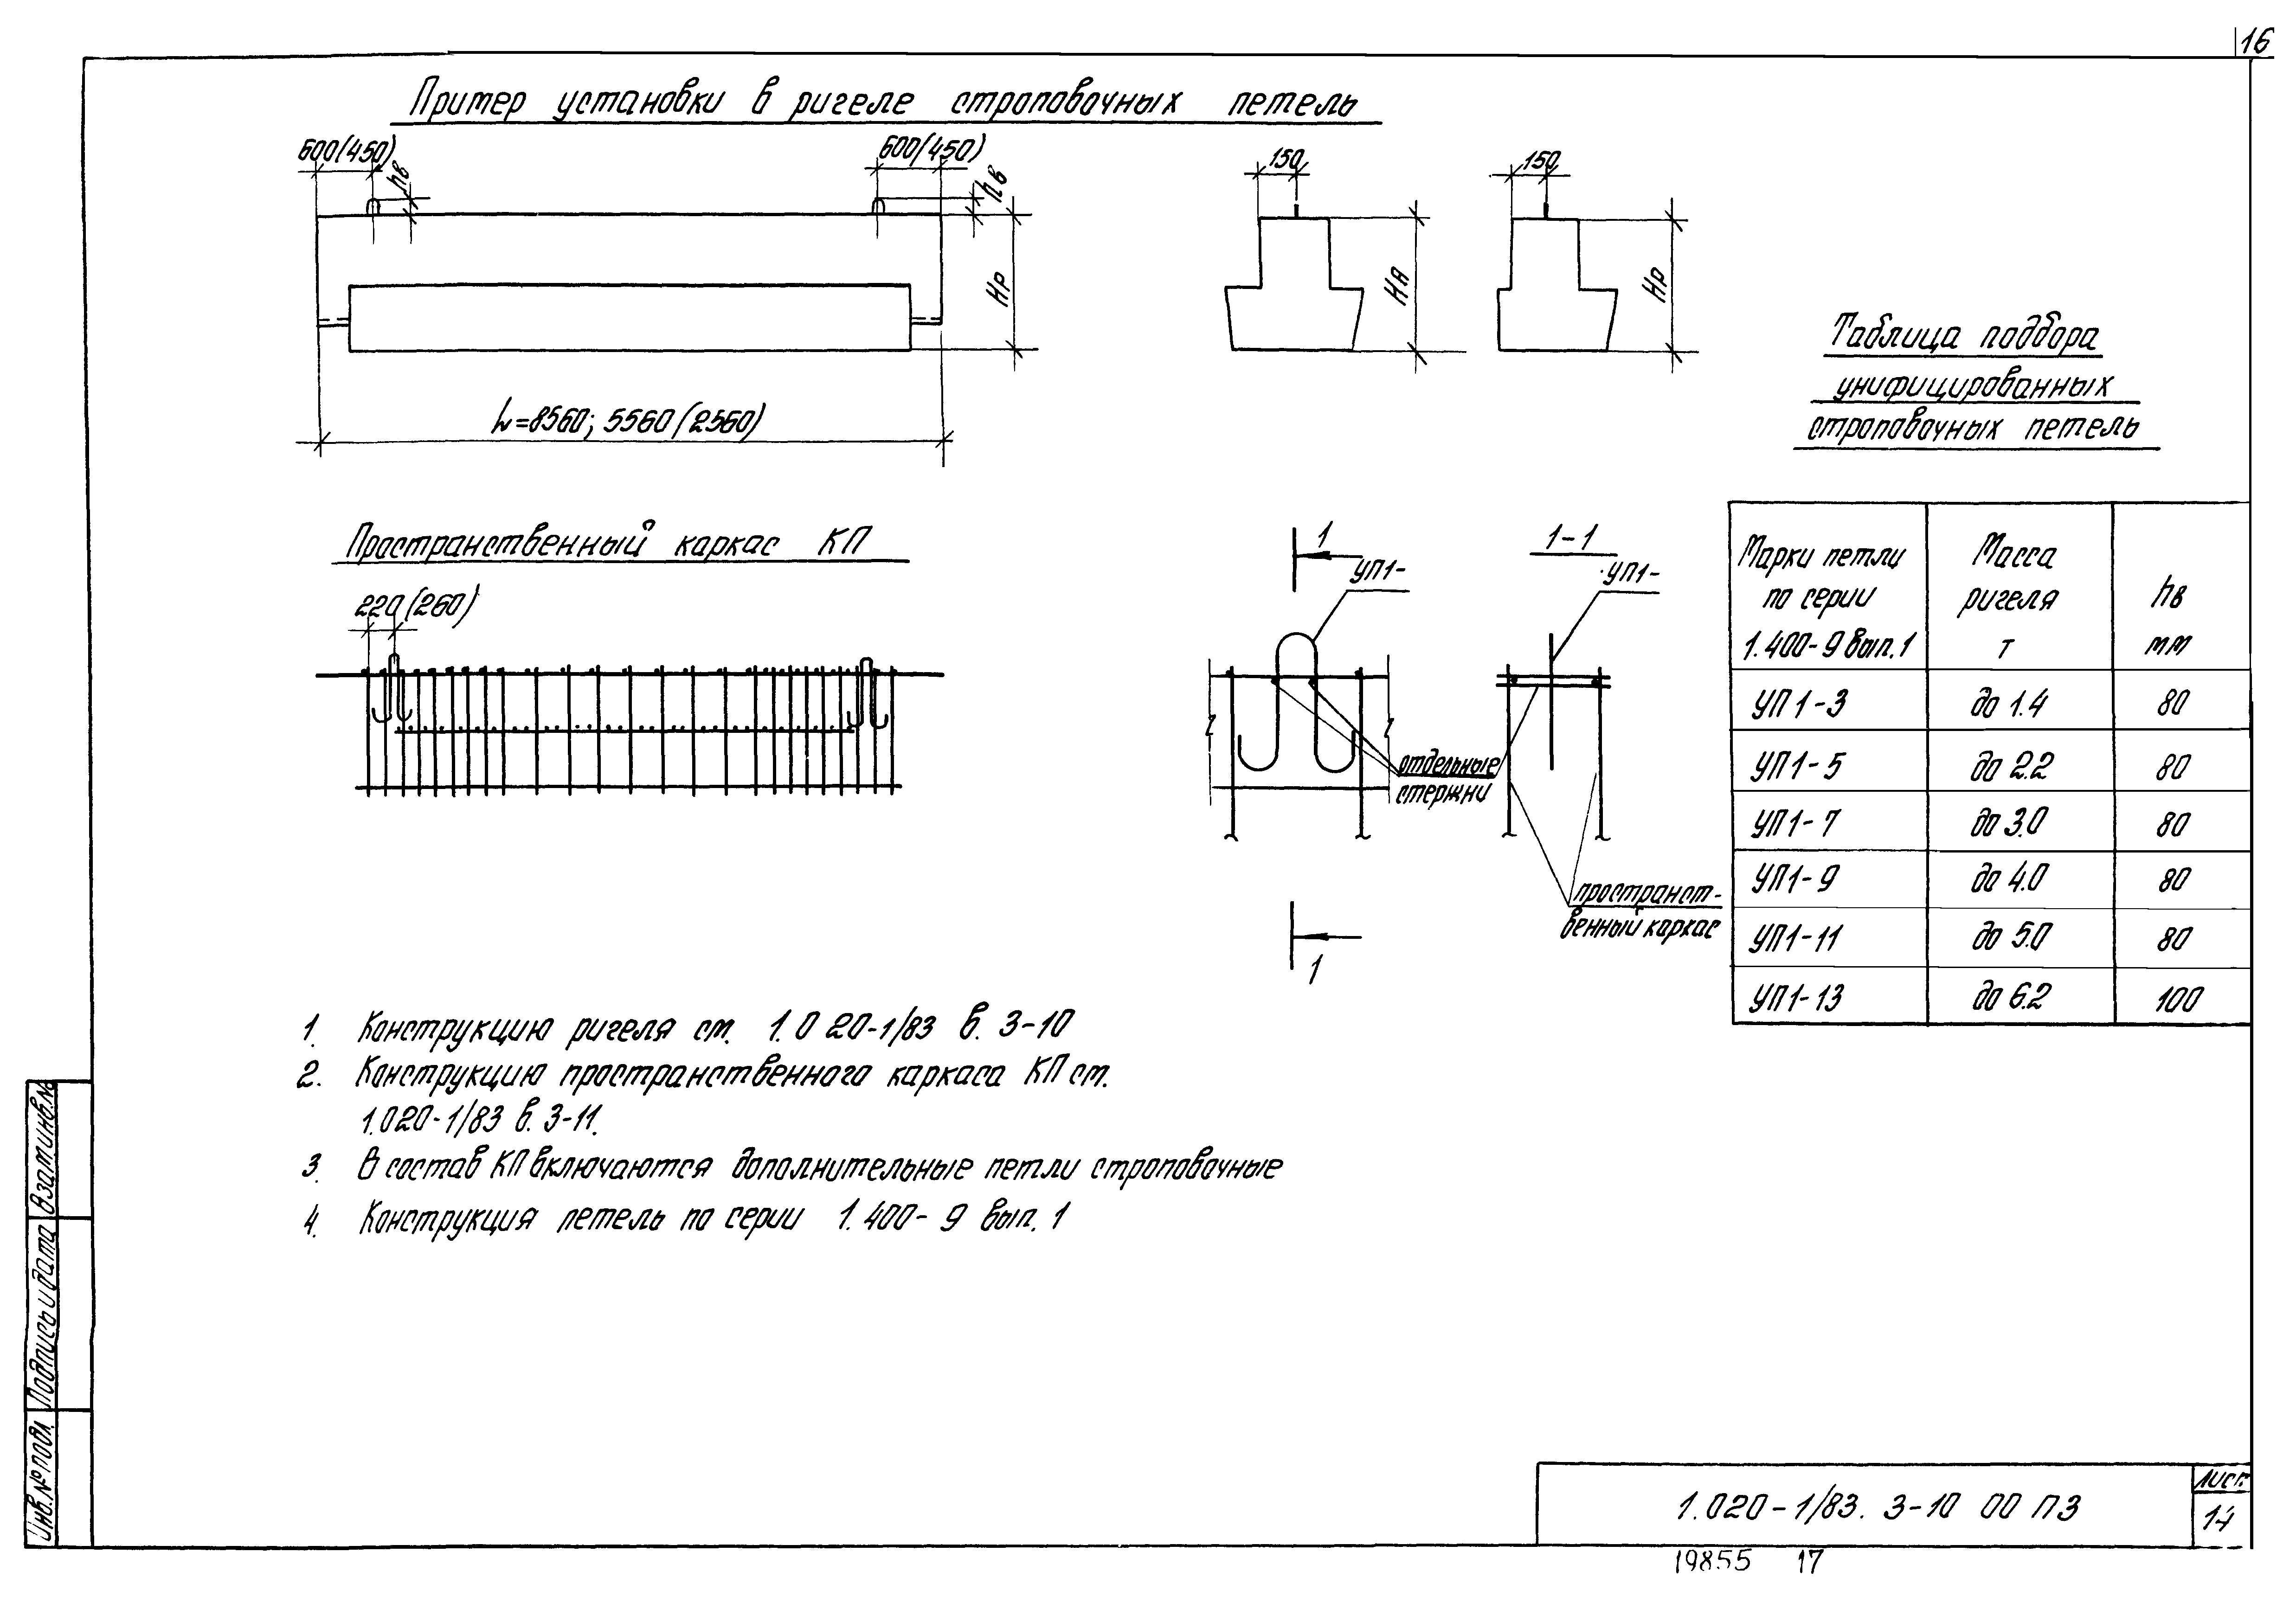 16
Пример установки в ригеле строповочных петель
600(450)
hв
600(450)
hв
Нр
L=8560; 5560(2560)
150
НЯ
150
Нр
Таблица подбора
унифицированных
строповочных петель
Пространственный каркас КП
220(260)
1
УП1-
1-1
УП1-
отдельные
стержни
пространст-
венный каркас
1
Марки петли
по серии
1.400-9 вып.1
Масса
ригеля
т
hв
мм
УП1-3 до 1.4 80
УП1-5 до 2.2 80
УП1-7 до 3.0 80
УП1-9 до 4.0 80
УП1-11 до 5.0 80
УП1-13 до 6.2 100
1. Конструкцию ригеля см. 1.020-1/83 в. 3-10
2. Конструкцию пространственного каркаса КП см.
1.020-1/83 в. 3-11.
3. В состав КП включаются дополнительные петли строповочные
4. Конструкция петель по серии 1.400-9 вып. 1
Взам.инв.№
Подпись и дата
Инв.№ подл.
1.020-1/83. 3-10 00 ПЗ
Лист
14
19855 17